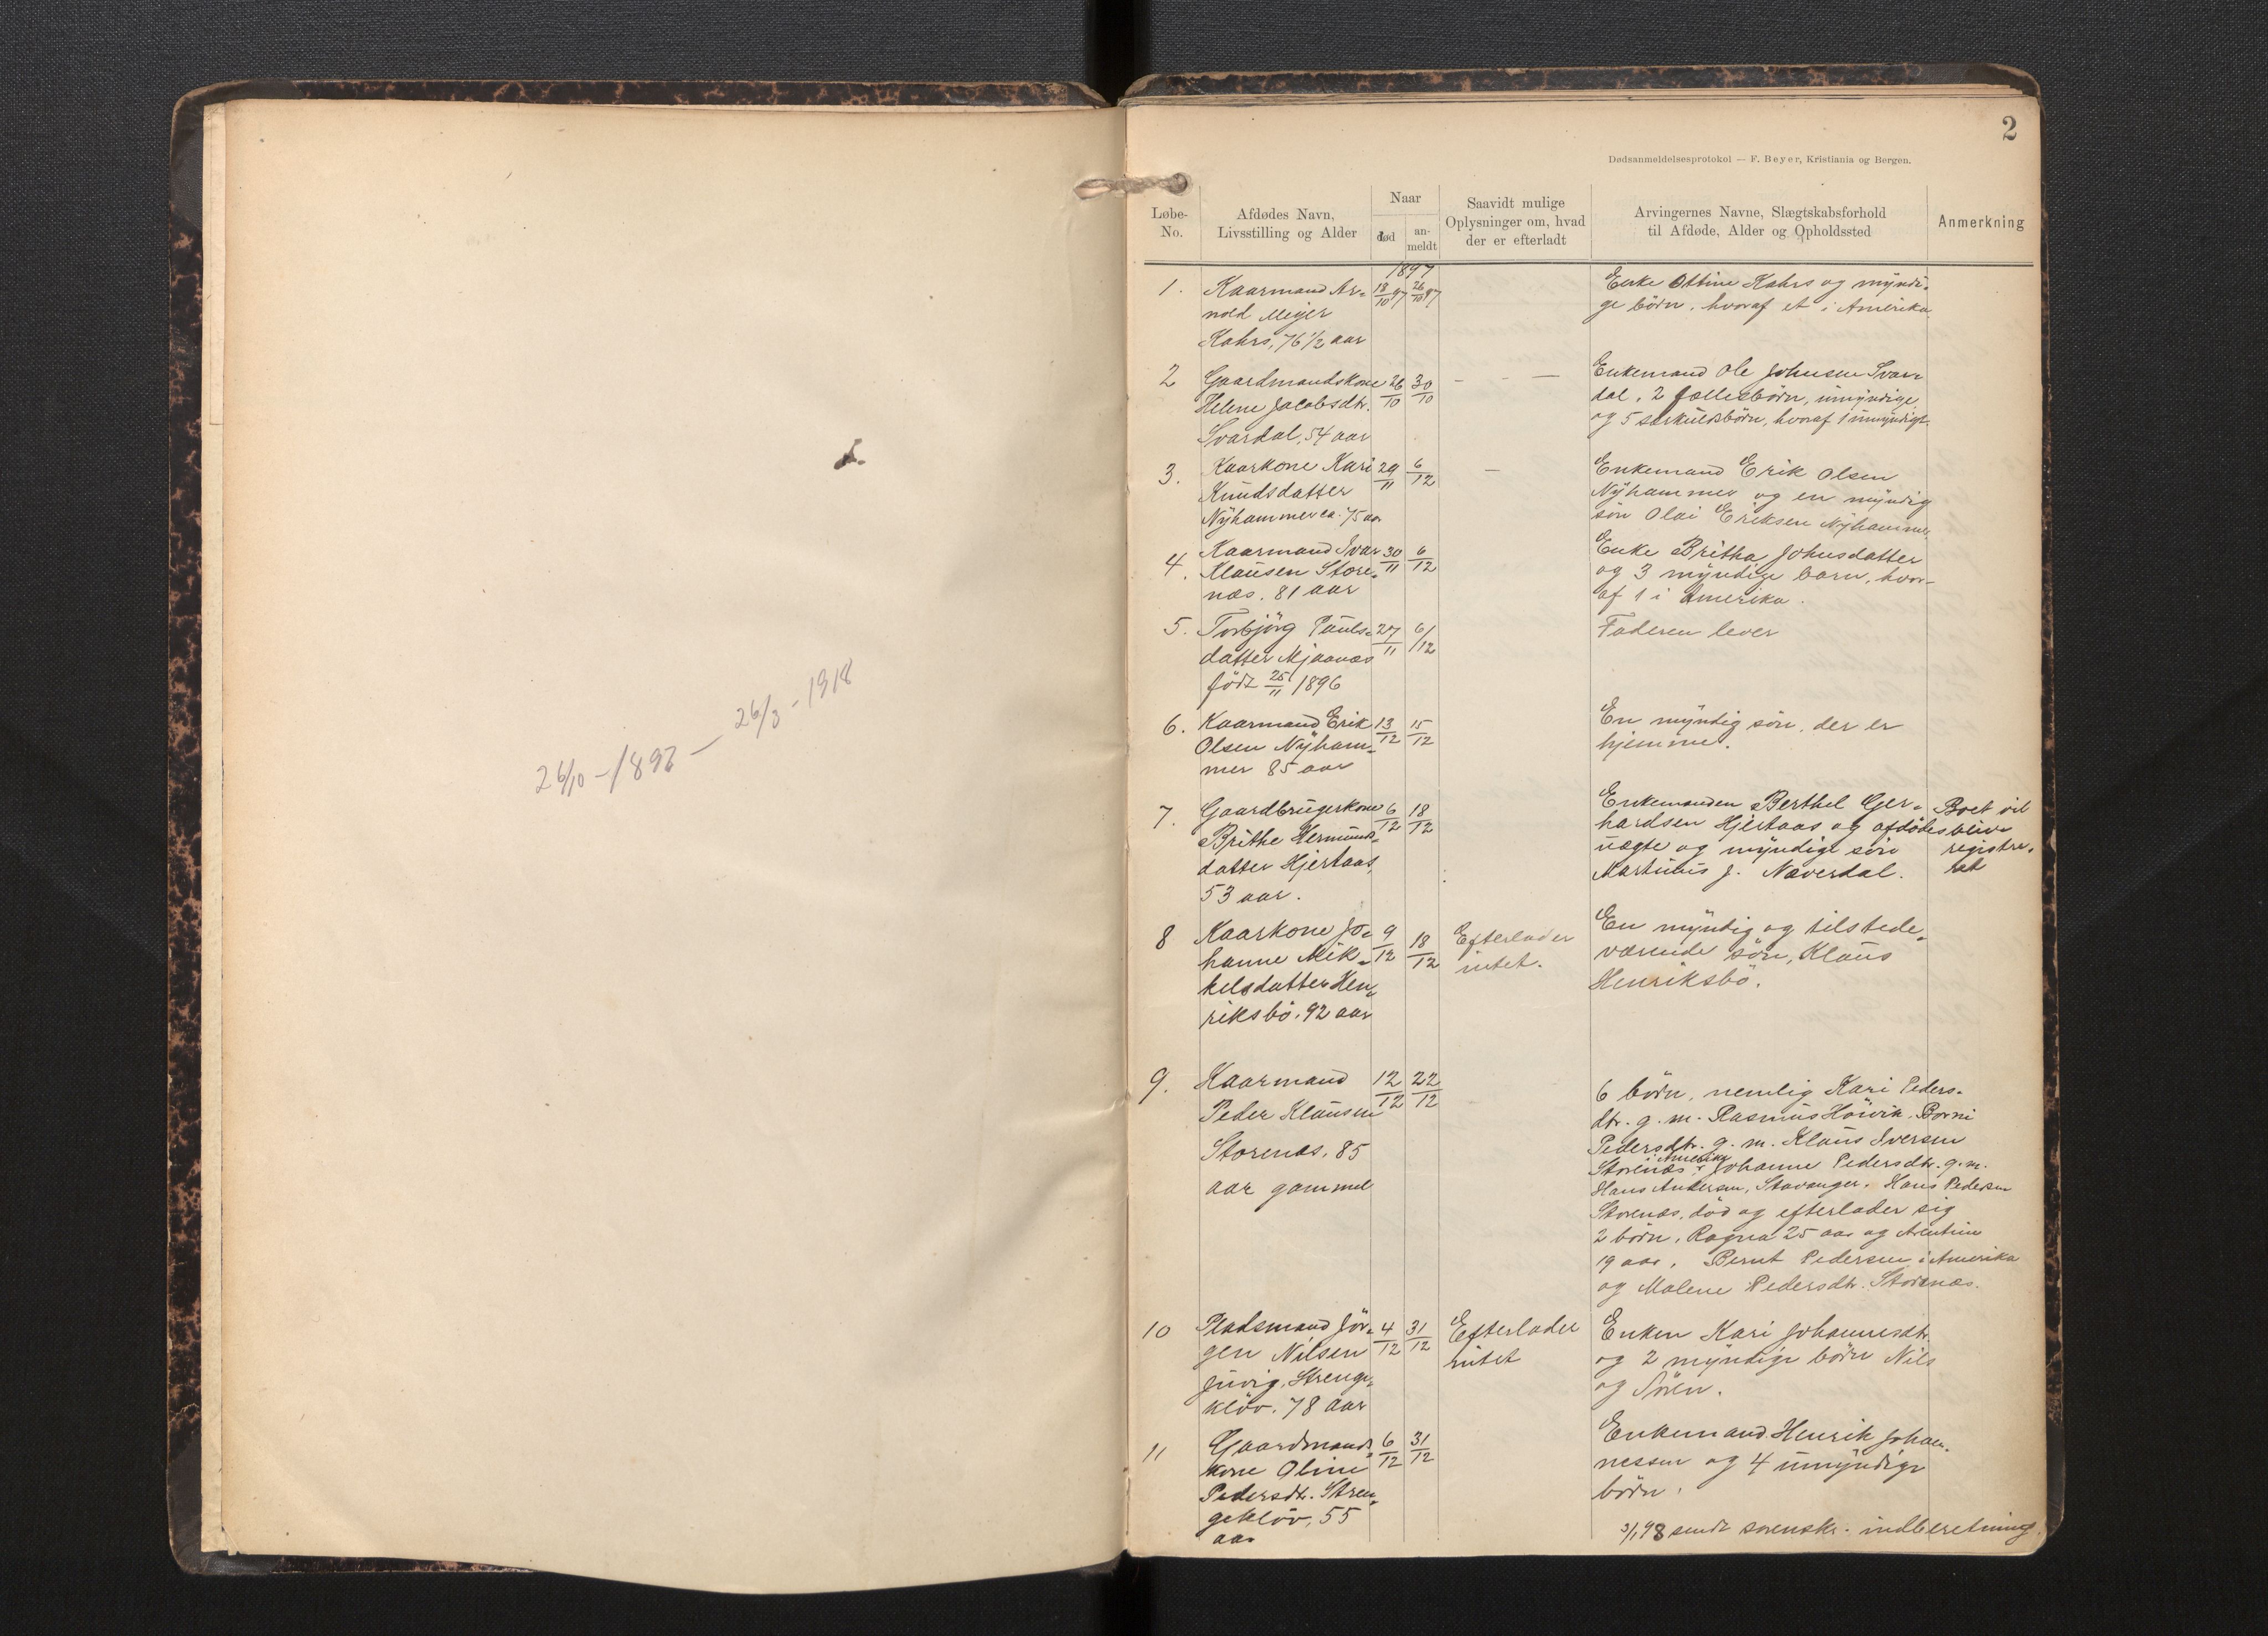 26/10 - 1897 - 26/3 - 1918
2
Dødsanmeldelsesprotokol — F. Beyer, Kristiania og Bergen.
Løbe-
No.
Afdødes Navn,
Livsstilling og Alder
Naar
død
an-
meldt
Saavidt mulige
Oplysninger om, hvad
der er efterladt
Arvingernes Navne, Slægtskabsforhold
til Afdøde, Alder og Opholdssted
Anmerkning
1897
1. Kaarmand Ar- 18/10 97 26/10 97
nold Meyer
Kahrs, 76 1/2 aar
Enke Ottine Kahrs og myndi-
ge börn, hvoraf et i Amerika
2 Gaardmandskone 26/10 30/10 - - —
Helene Jacobsdtr.
Svardal, 54 aar
Enkemand Ole Johnsen Svar-
dal, 2 fællesbörn, umyndige
og 5 særkuldsbörn, hvoraf 1 umyndigt.
3. Kaarkone Kari 29/11 6/12 —
Knudsdatter
Nyhammer ca. 75 aar
Enkemand Erik Olsen
Nyhammer og en myndig
sön Olai Eriksen Nyhammer
4. Kaarmand Ivar 30/11 6/12
Klausen Store-
næs. 81 aar
Enke Britha Johnsdatter
og 3 myndige barn, hvor-
af 1 i Amerika.
5. Torbjörg Pauls- 27/11 6/12
datter Mjaanæs
født 25/11 1896
Faderen lever
6. Kaarmand Erik 13/12 15/12
Olsen Nyham-
mer 85 aar
En myndig sön, der er
hjemme.
7. Gaardbrugerkone 6/12 18/12
Brithe Hermunds-
datter Hjertaas,
53 aar.
Enkemanden Berthel Ger-
hardsen Hjertaas og afdödes
uægte og myndige sön
Martinus J. Næverdal.
Boet vil
blive
registre-
ret
8 Kaarkone Jo- 9/12 18/12
hanne Mik-
kelsdatter Hen-
riksbö. 92 aar
Efterlader
intet.
En myndig og tilstede-
værende sön, Klaus
Henriksbö.
9. Kaarmand 12/12 22/12
Peder Klausen
Storenæs, 85
aar gammel
6 börn, nemlig Kari Peders-
dtr. g. m. Rasmus Höivik. Borni
Pedersdtr. g. m. Klaus Iversen
Storenæs i Amerika, Johanne Pedersdtr. g. m.
Hans Andersen, Stavanger. Hans Pedersen
Storenæs, död og efterlader sig
2 börn, Ragna 25 aar og Arentine
19 aar, Bernt Pedersen i Amerika
og Malene Pedersdtr. Storenæs.
10 Pladsmand Jör- 4/12 31/12
gen Nilsen
Juvig, Strenge-
klöv. 78 aar
Efterlader
intet
Enken Kari Johannesdtr.
og 2 myndige börn Nils
og Sören.
11 Gaardmands- 6/12 31/12
kone Oline
Pedersdtr. Stren-
geklöv, 55
aar
Enkemand Henrik Johan-
nessen og 4 umyndige
börn.
3/1 98 sendt sorenskr. indberetning.